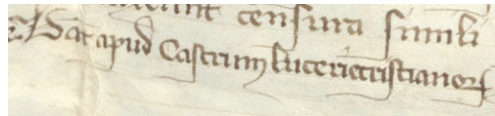 censura simili
Dat apud Castrum lucerie cristianorꝝ